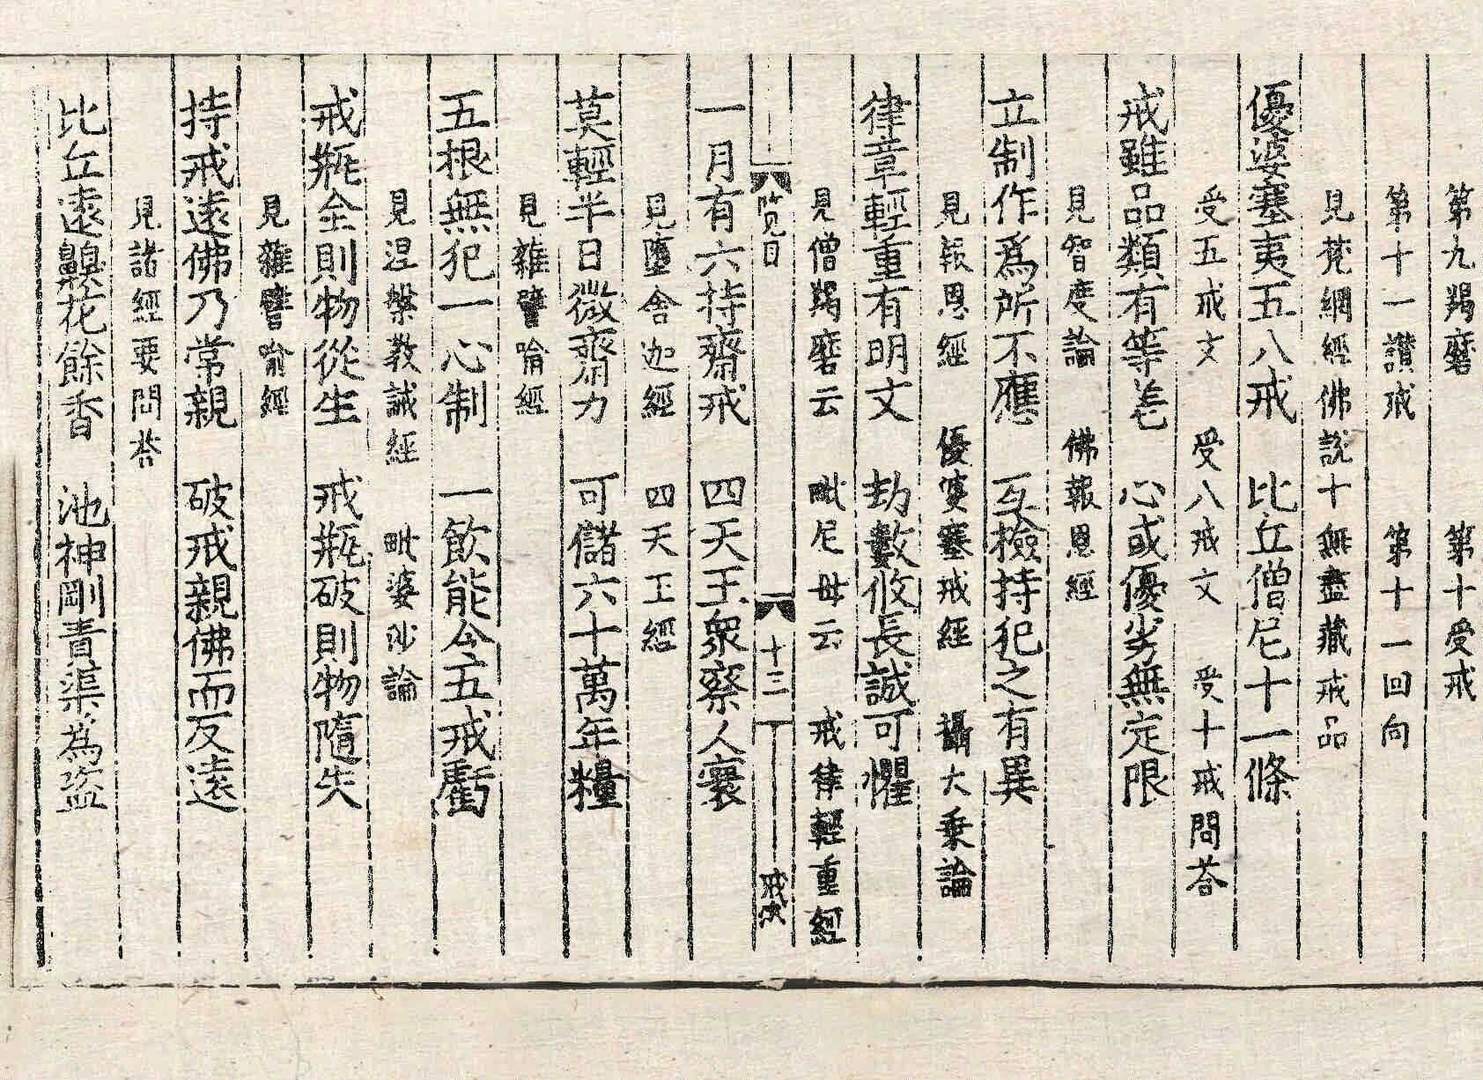 第九羯磨　第十受戒
第十一讚戒　第十一回向
見梵網經佛說十無盡藏戒品
優婆塞夷五八戒　比丘僧尼十一條
受五戒文　受八戒文　受十戒問荅
戒雖品類有等差　心或優劣無定限
見智度論　佛報恩經
立制作爲所不應　互撿持犯之有異
見報恩經　優婆塞戒經　攝大乗論
律章輕重有明文　劫數攸長誠可懼
見僧羯磨云　毗尼母云　戒律輕重經
六　十三　戒
一月有六持齋戒　四天王衆察人寰
見墮舍迦經　四天王經
莫輕半日微齋力　可儲六十萬年糧
見雜譬喻經
五根無犯一心制　一飲能令五戒虧
見涅槃教誡經　毗婆沙論
戒瓶全則物從生　戒瓶破則物隨失
見雜譬喻經
持戒遠佛乃常親　破戒親佛而反遠
見諸經要問荅
比丘遠齅花餘香　池神剛責渠為盜